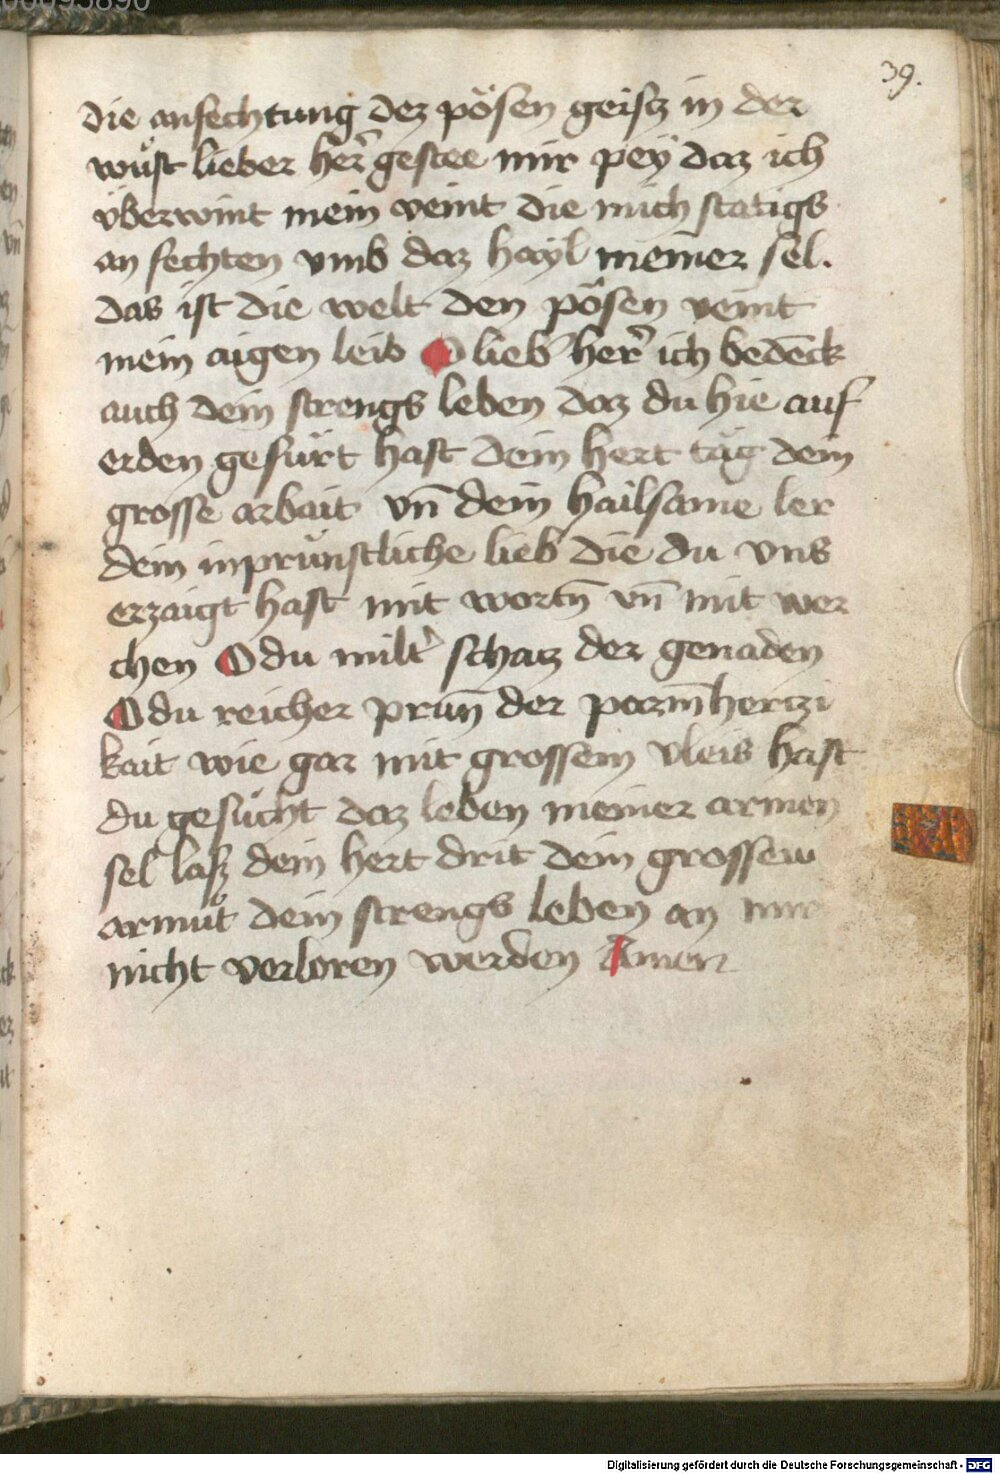 39.
die anfechtung dez pösen geistz in der
wüst lieber her̃ gestee mir pey daz ich
vberwint mein veint die mich statigs
an fechten vmb daz hayl meiner sel.
das ist die welt den pösen veint
mein aigen leib O lieb' her̃ ich bedenck
auch dein strengs leben daz du hie auf
erden gefürt hast dein hert täg dein
grosse arbait vn̄ dein hailsame ler
dein inprünstliche lieb die du vns
erzaigt hast mit wortn̄ vn̄ mit wer
chen O du milt' schatz der genaden
O du reicher prun̄ der parm̄hertzi
kait wie gar mit grossem vleis hast
du gesücht daz leben meiner armen
sel laß dein hert drit dein grossew
armůt dein strengs leben an mir
nicht verloren werden Amen
Digitalisierung gefördert durch die Deutsche Forschungsgemeinschaft - DFG